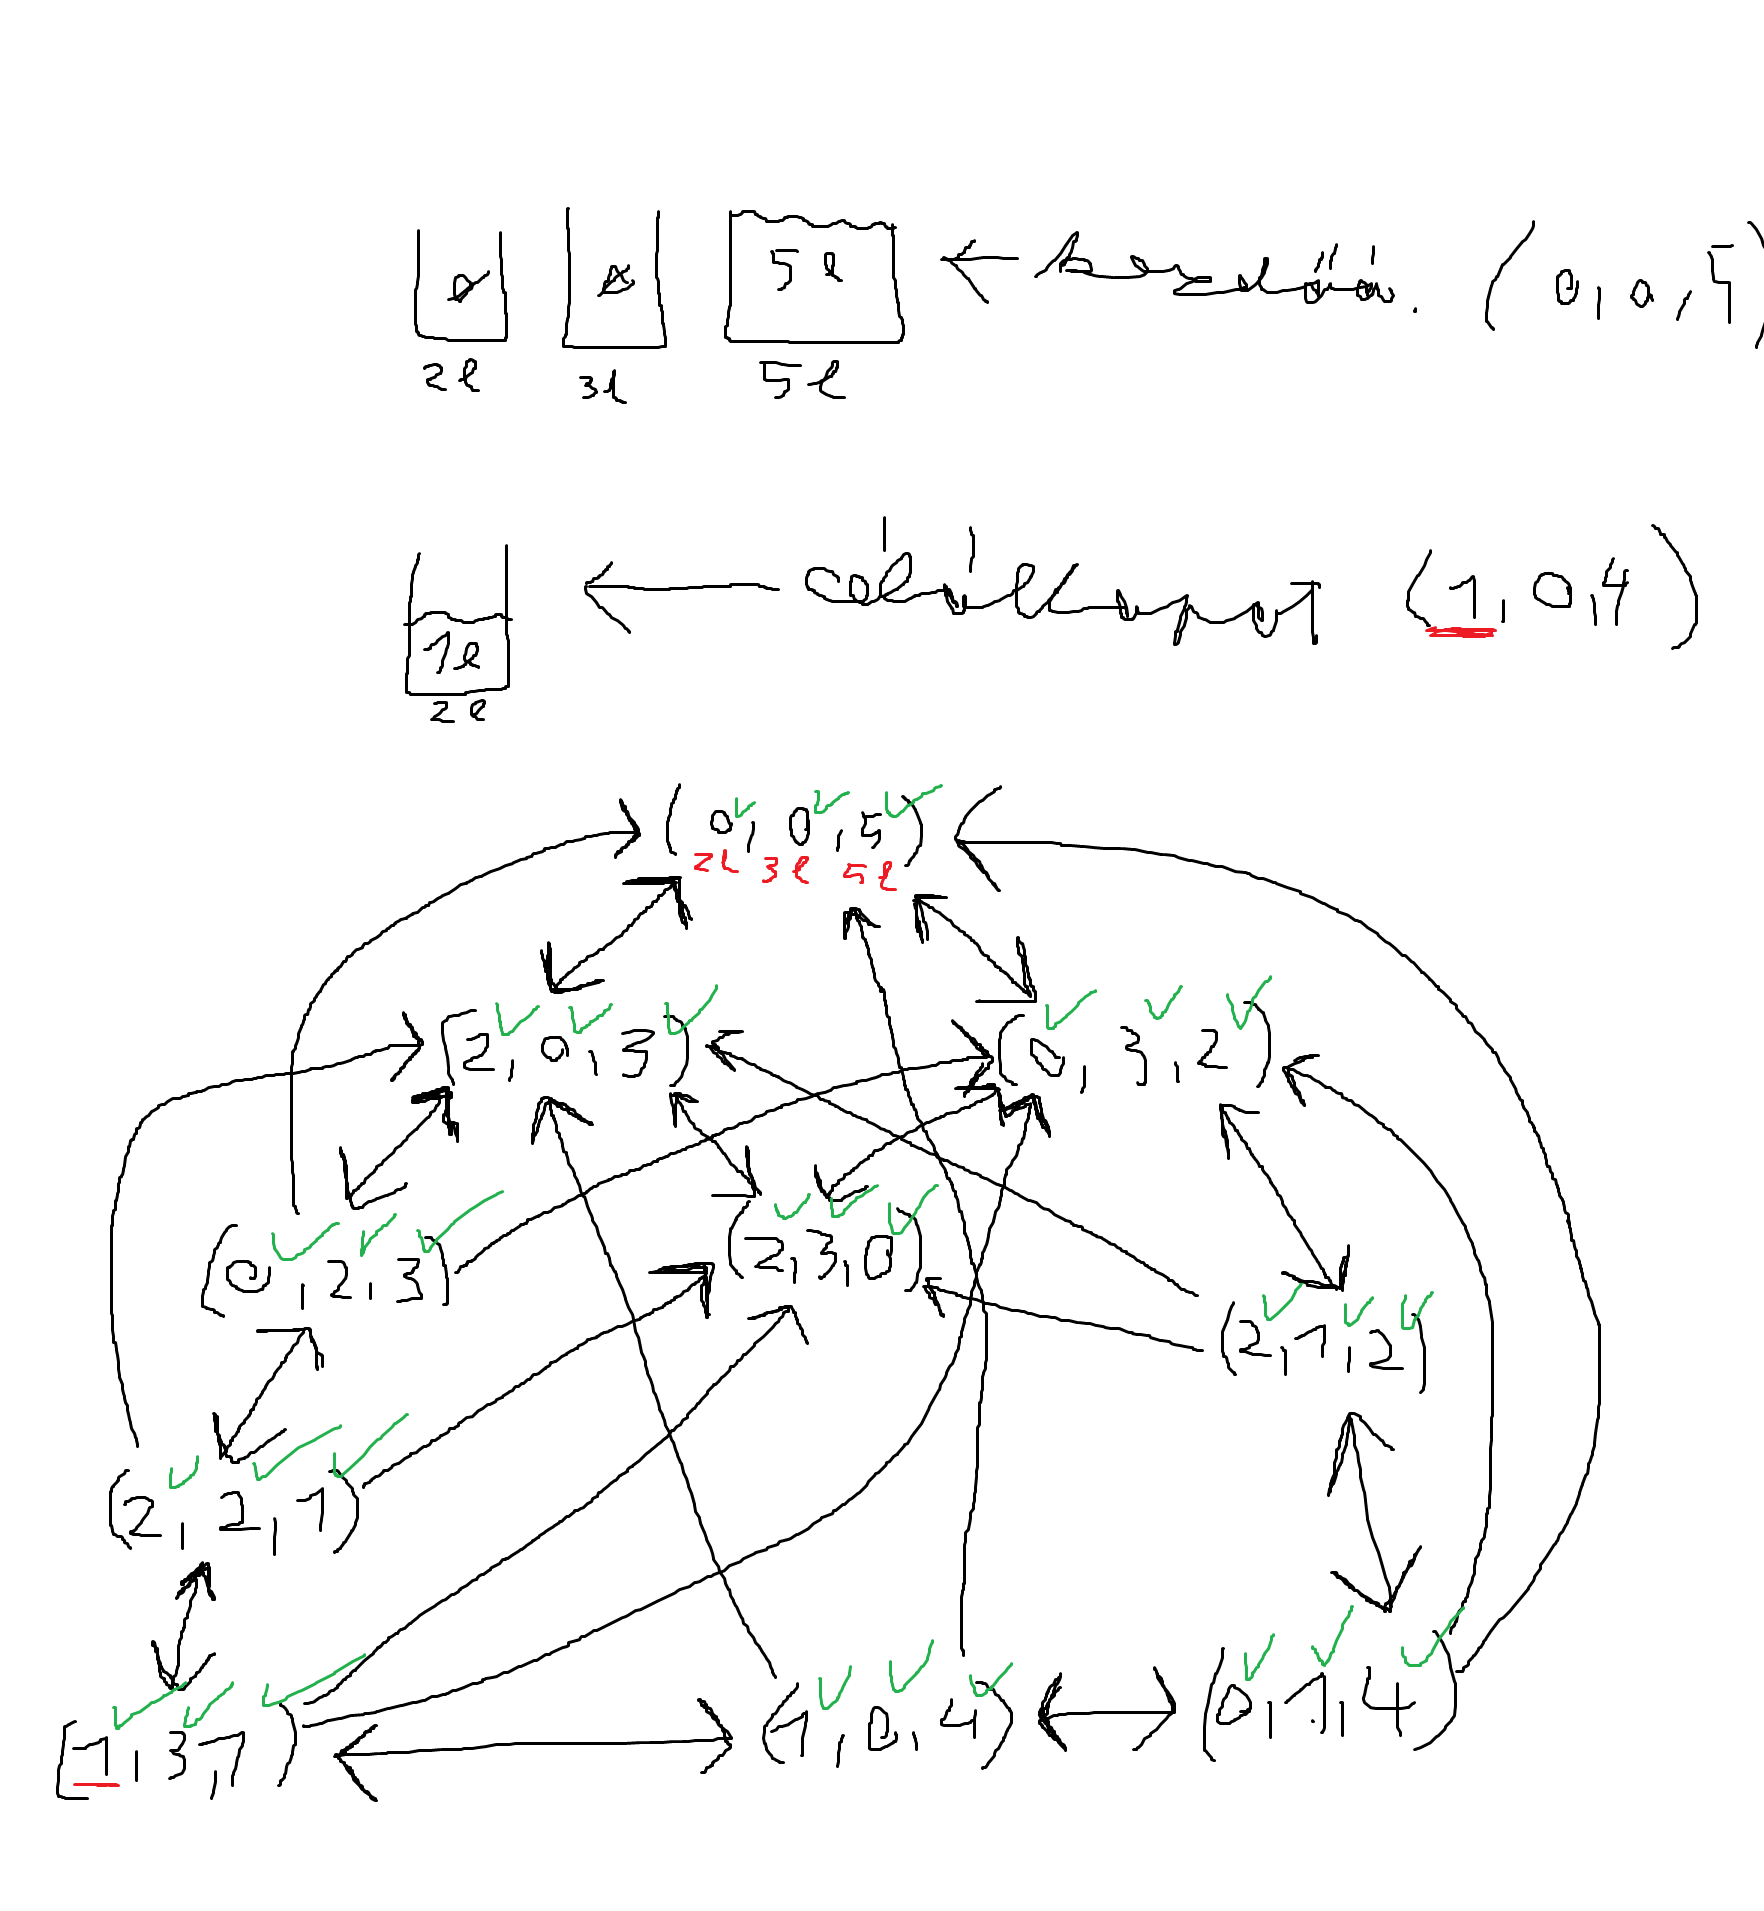 0 0 5l ← kezdőáll. (0, 0, 5)
2l 3l 5l
1l ← célállapot (1, 0, 4)
2l
(0, 0, 5)
2l 3l 5l
[2, 0, 3) (0, 3, 2)
(0, 2, 3) (2, 3, 0)
(2, 1, 2)
(2, 2, 1)
[1, 3, 1) (1, 0, 4) (0, 1, 4)